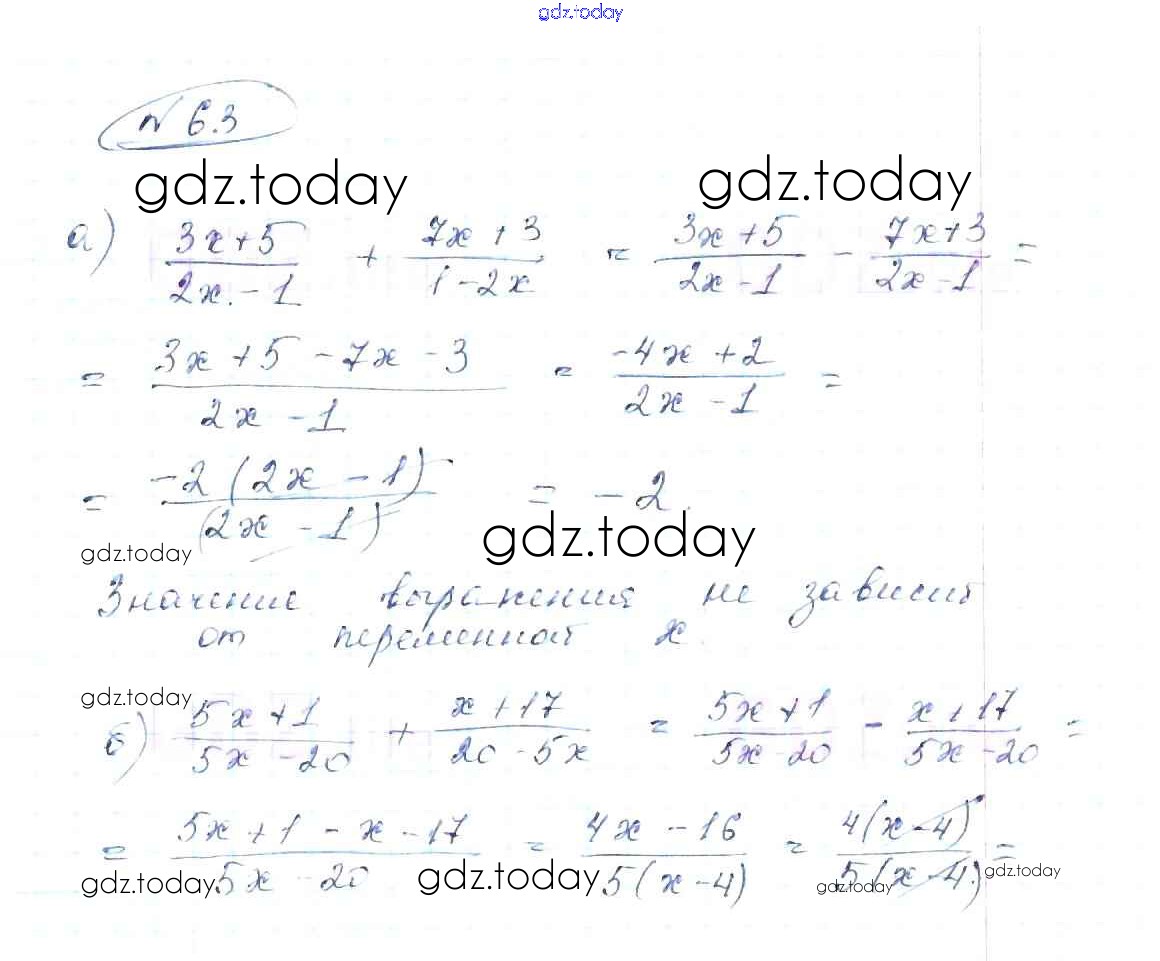 gdz.today
№ 6.3
gdz.today gdz.today
а) (3x+5)/(2x-1) + (7x+3)/(1-2x) = (3x+5)/(2x-1) - (7x+3)/(2x-1) =
= (3x+5-7x-3)/(2x-1) = (-4x+2)/(2x-1) =
= (-2(2x-1))/((2x-1)) = -2.
gdz.today gdz.today
Значение выражения не зависит
от переменной x.
gdz.today
б) (5x+1)/(5x-20) + (x+17)/(20-5x) = (5x+1)/(5x-20) - (x+17)/(5x-20) =
= (5x+1-x-17)/(5x-20) = (4x-16)/(5(x-4)) = (4(x-4))/(5(x-4)) =
gdz.today gdz.today gdz.today gdz.today